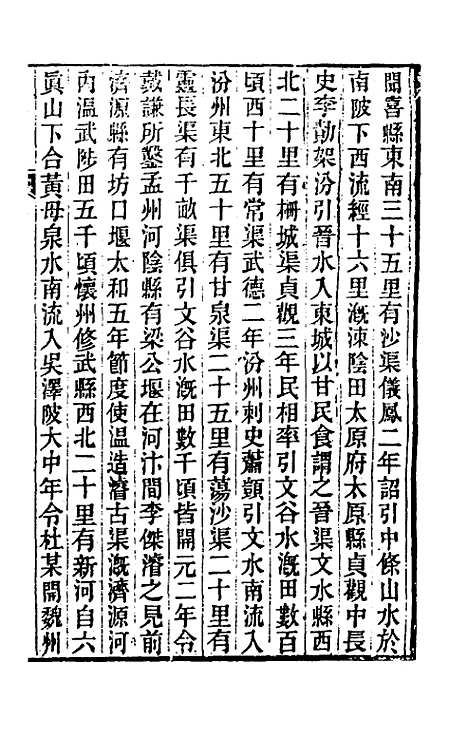 聞喜縣東南三十五里有沙渠儀鳳二年詔引中條山水於
南陂下西流經十六里漑涑陰田太原府太原縣貞觀中長
史李勣架汾引晉水入東城以甘民食謂之晉渠文水縣西
北二十里有柵城渠貞觀三年民相率引文谷水漑田數百
頃西十里有常渠武德二年汾州刺史蕭顗引文水南流入
汾州東北五十里有甘泉渠二十五里有蕩沙渠二十里有
靈長渠有千畝渠俱引文谷水漑田數千頃皆開元二年令
戴謙所鑿孟州河陰縣有梁公堰在河汴間李傑濬之見前
濟源縣有坊口堰太和五年節度使溫造濬古渠漑濟源河
內溫武陟田五千頃懷州修武縣西北二十里有新河自六
眞山下合黃母泉水南流入吳澤陂大中年令杜某開魏州